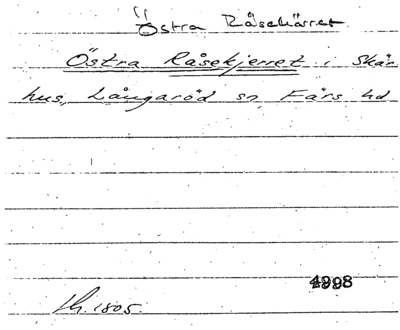 Östra Råsekärret
Östra Råsekjerret i Skår
hus, Långaröd sn, Färs hd
4998
1805.